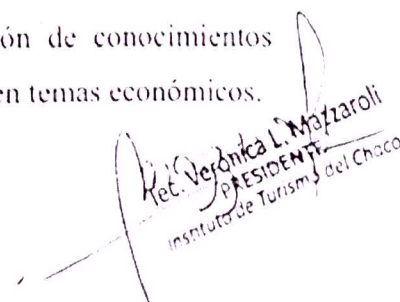 ón de conocimientos
en temas económicos.
Ret. Verónica L. Mazzaroli
PRESIDENTE
Instituto de Turismo del Chaco